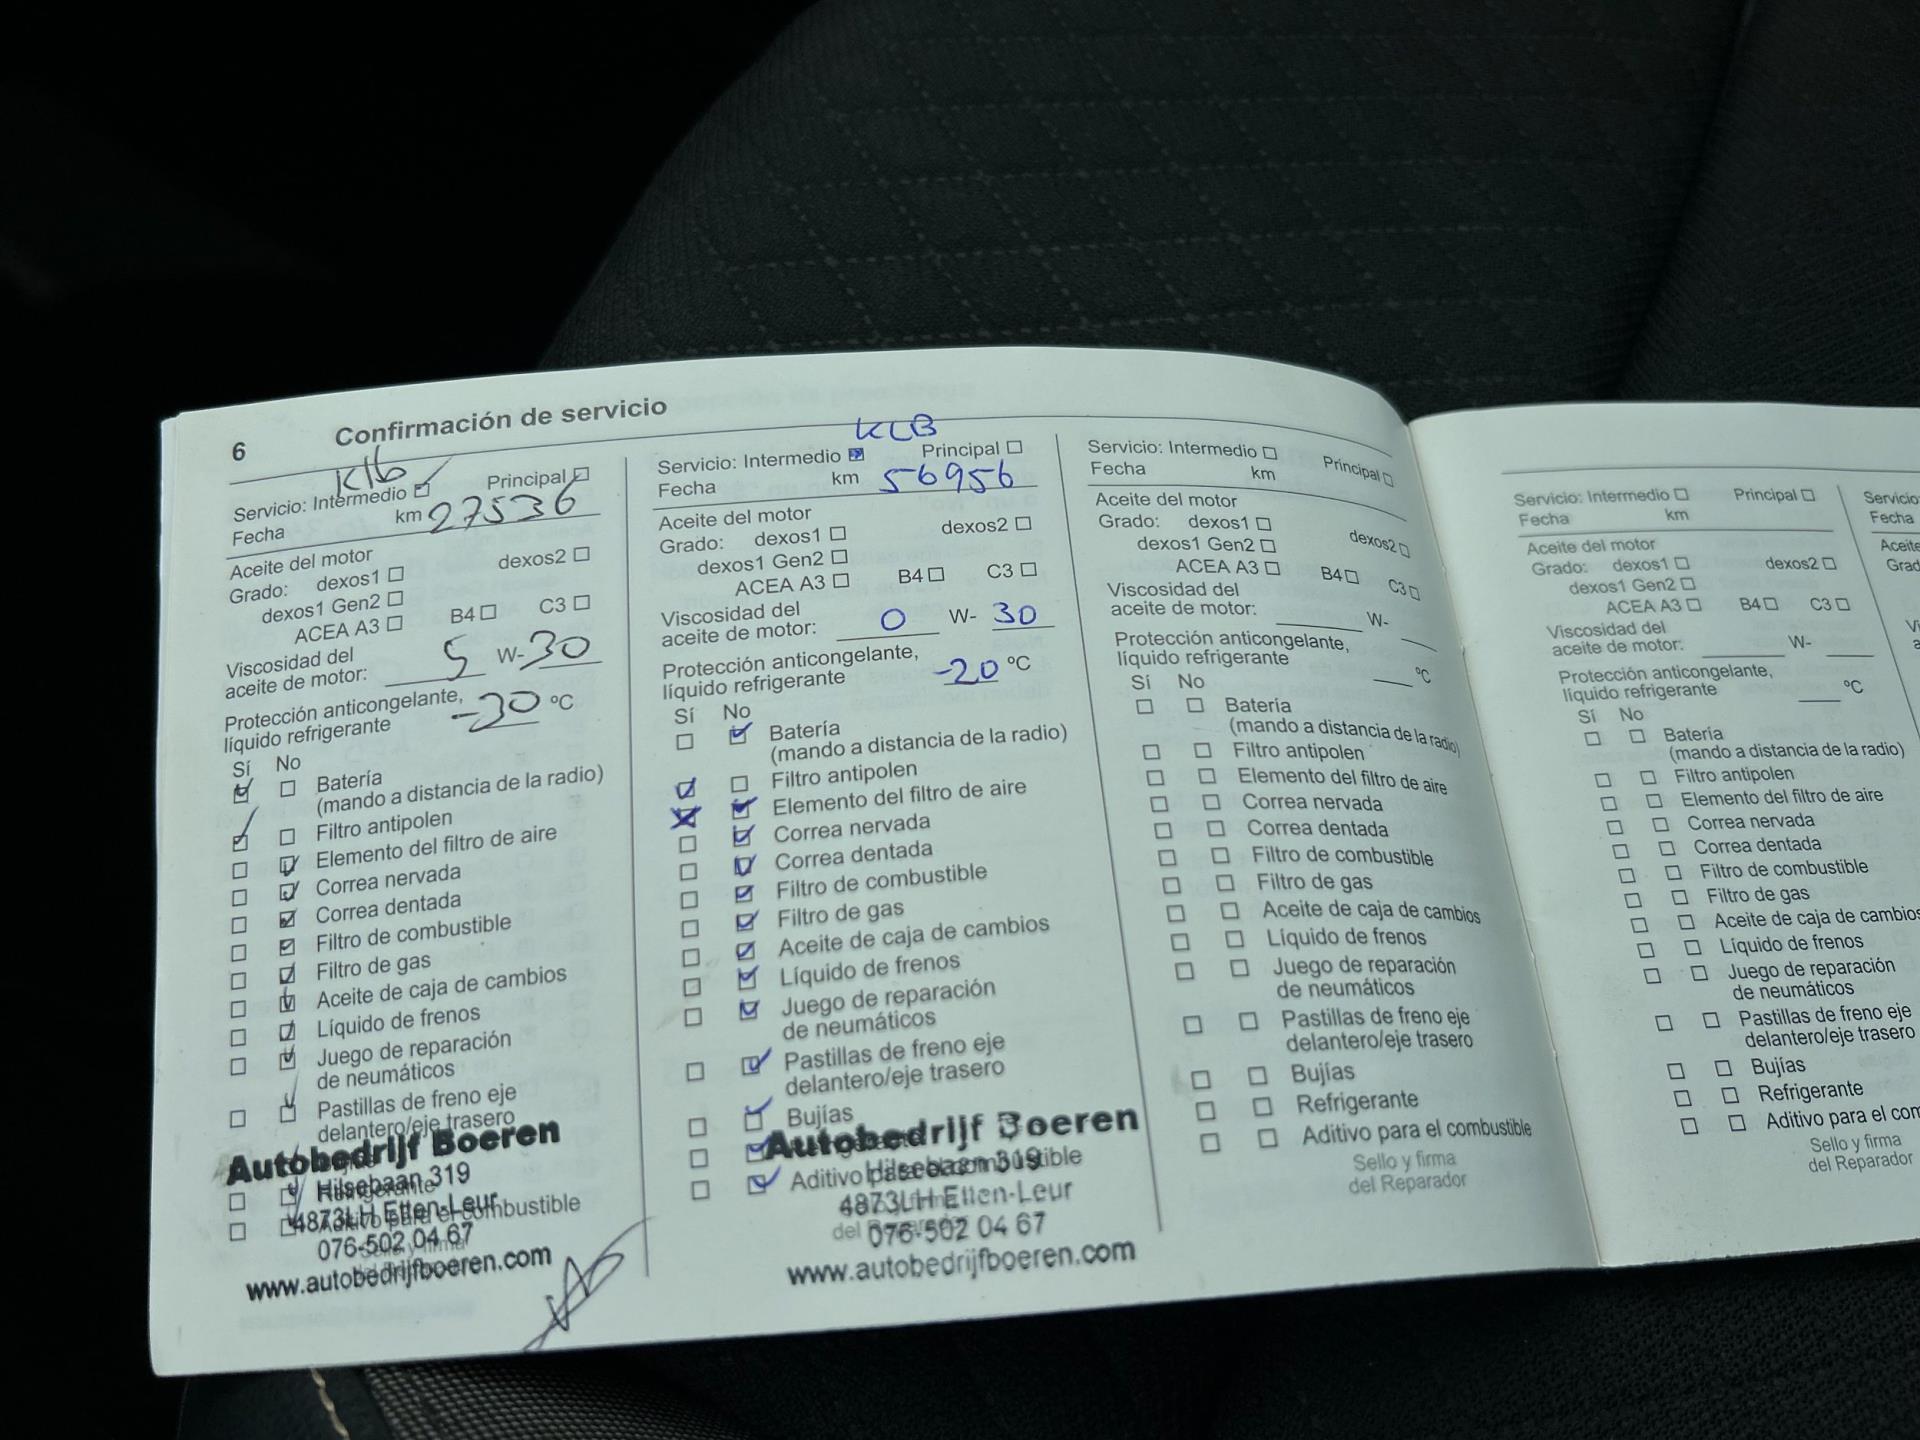 6 Confirmación de servicio
Klb
Servicio: Intermedio Principal
Fecha km 27536
Aceite del motor
Grado: dexos1 dexos2
dexos1 Gen2
ACEA A3 B4 C3
Viscosidad del
aceite de motor: 5 W-30
Protección anticongelante,
líquido refrigerante -30 ºC
Sí No
Batería
(mando a distancia de la radio)
Filtro antipolen
Elemento del filtro de aire
Correa nervada
Correa dentada
Filtro de combustible
Filtro de gas
Aceite de caja de cambios
Líquido de frenos
Juego de reparación
de neumáticos
Pastillas de freno eje
delantero/eje trasero
Autobedrijf Boeren
Hilsebaan 319
Refrigerante
4873LH Etten-Leur
Aditivo para el combustible
076-502 04 67
Sello y firma
www.autobedrijfboeren.com
KLB
Servicio: Intermedio Principal
Fecha km 56956
Aceite del motor
Grado: dexos1 dexos2
dexos1 Gen2
ACEA A3 B4 C3
Viscosidad del
aceite de motor: 0 W- 30
Protección anticongelante,
líquido refrigerante -20 ºC
Sí No
Batería
(mando a distancia de la radio)
Filtro antipolen
Elemento del filtro de aire
Correa nervada
Correa dentada
Filtro de combustible
Filtro de gas
Aceite de caja de cambios
Líquido de frenos
Juego de reparación
de neumáticos
Pastillas de freno eje
delantero/eje trasero
Bujías
Autobedrijf Boeren
Hilsebaan 319
Aditivo para el combustible
4873LH Etten-Leur
del Reparador
076-502 04 67
www.autobedrijfboeren.com
Servicio: Intermedio Principal
Fecha km
Aceite del motor
Grado: dexos1 dexos2
dexos1 Gen2
ACEA A3 B4 C3
Viscosidad del
aceite de motor: W-
Protección anticongelante,
líquido refrigerante ºC
Sí No
Batería
(mando a distancia de la radio)
Filtro antipolen
Elemento del filtro de aire
Correa nervada
Correa dentada
Filtro de combustible
Filtro de gas
Aceite de caja de cambios
Líquido de frenos
Juego de reparación
de neumáticos
Pastillas de freno eje
delantero/eje trasero
Bujías
Refrigerante
Aditivo para el combustible
Sello y firma
del Reparador
Servicio: Intermedio Principal
Fecha km
Aceite del motor
Grado: dexos1 dexos2
dexos1 Gen2
ACEA A3 B4 C3
Viscosidad del
aceite de motor: W-
Protección anticongelante,
líquido refrigerante ºC
Sí No
Batería
(mando a distancia de la radio)
Filtro antipolen
Elemento del filtro de aire
Correa nervada
Correa dentada
Filtro de combustible
Filtro de gas
Aceite de caja de cambios
Líquido de frenos
Juego de reparación
de neumáticos
Pastillas de freno eje
delantero/eje trasero
Bujías
Refrigerante
Aditivo para el com
Sello y firma
del Reparador
Servicio
Fecha
Aceite
Grad